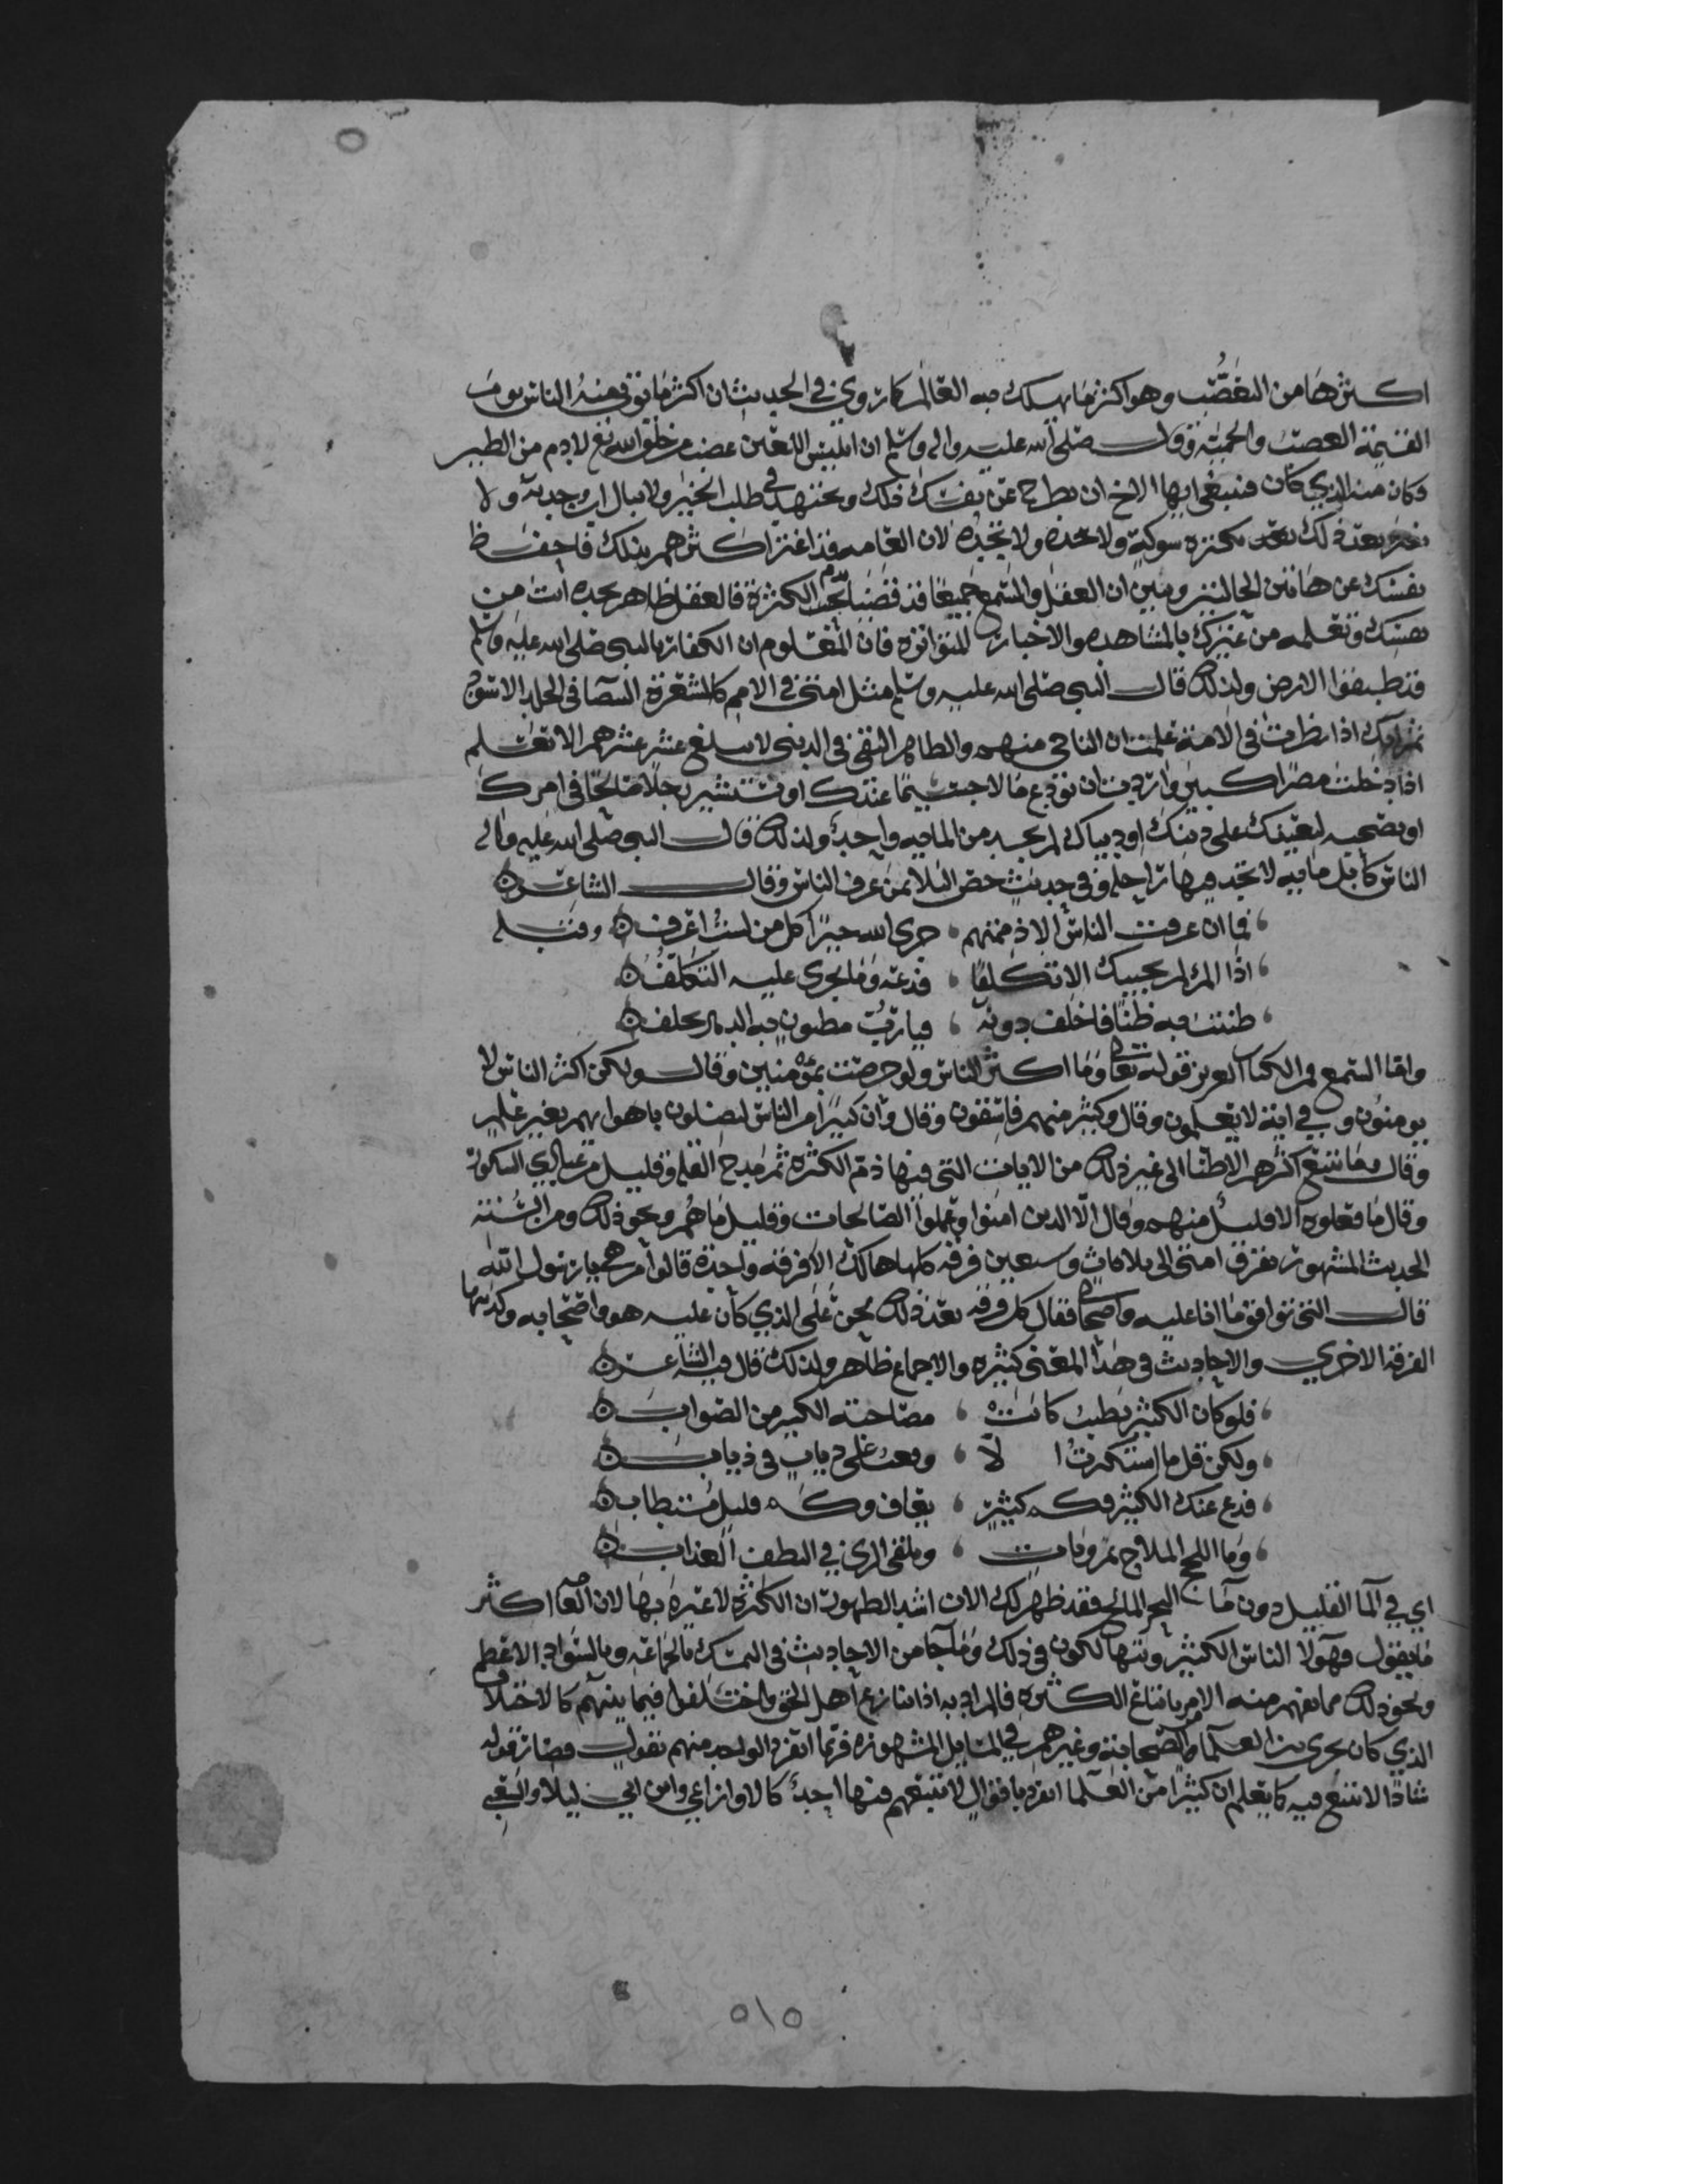 اكثرها من التعصب وهو اكثر ما يهلك به العالم كما روي في الحديث ان اكثر ما توتى منه الناس يوم
القيمة العصبية والحمية وقال صلى الله عليه واله وسلم ان ابليس اللعين غضب من خلق الله تع لادم من الطين
فكان منه الذي كان فينبغي ايها الاخ ان تطرح عن نفسك ذلك وتجتهد في طلب الخير ولا تبال اين وجدته ولا
تغتر بعد ذلك بكثرة ولا لان العامه قد اغتر اكثرهم بذلك فاحفظ
نفسك عن هاتين الحالتين وتبين ان العقل والسمع جميعا قد قضيا بذم الكثرة فالعقل ظاهر تجده انت من
نفسك وتعلمه من غيرك بالمشاهده والاخبار المتواتره فان المعلوم ان الكفار بالنبي صلى الله عليه وسلم
قد طبقوا الارض ولذلك قال النبي صلى الله عليه وسلم مثل امتي في الامم كالشعرة البيضا في الجلد الاسود
ثم انك اذا نظرت في الامة علمت ان الناجي منهم والطاهر التقي في الدين لا يبلغ عشر عشرهم الا تعلم
اذا دخلت مصرا كبير واردت ان تودع مالا جسيما عندك او تستشير رجلا صالحا في امرك
او تصحبه ليعينك على دينك او دنياك لم تجد من المايه واحد ولذلك قال النبي صلى الله عليه واله
الناس كابل مايه لا تجد فيها راحله وفي حديث خص البلا من عرف الناس وقال الشاعر ه
فما ان عرفت الناس الا ذممتهم ، جزى الله خيرا كل من لست اعرف ه وقيل
اذا المرء لم يحببك الا تكلفا ، فدعه وما يجري عليه التكلف ه
ظننت به ظنا فاخلف دونه ، فيا رب مظنون به الدهر يخلف ه
واما السمع فمن الكتاب العزيز قوله تعالى وما اكثر الناس ولو حرصت بمؤمنين وقال ولكن اكثر الناس لا
يومنون وفي اية لا يعلمون وقال وكثير منهم فاسقون وقال وان كثيرا من الناس ليضلون باهوائهم بغير علم
وقال وما يتبع اكثرهم الا ظنا الى غير ذلك من الايات التي فيها ذم الكثرة ثم مدح القله وقليل من عبادي الشكور
وقال ما فعلوه الا قليل منهم وقال الا الذين امنوا وعملوا الصالحات وقليل ما هم ونحو ذلك ومن السنة
الحديث المشهور تفترق امتي الى ثلاث وسبعين فرقه كلها هالكة الا فرقه واحدة قالوا من هم يا رسول الله
قال التي توافق ما انا عليه واصحابي فقال كل فرقه بعد ذلك نحن على الذي كان عليه هو واصحابه وكذبتها
الفرقه الاخرى والاحاديث في هذا المعنى كثيره والاجماع ظاهر ولذلك قال فيه الشاعر ه
فلو كان الكثير يطيب كانت ، مصاحبة الكثير من الصواب ه
ولكن قل ما استكثرت ا لا ، وقعت على ذياب في ثياب ه
فدع عنك الكثير فكم كثير ، يعاف وكم قليل مستطاب ه
وما اللجج الملاح بمرويات ، وتلقى الري في النطف العذاب ه
اي في الما القليل دون ما البحر المالح فقد ظهر لك الان اشد الظهور ان الكثرة لا عبره بها لان العامه اكثر
ما يقول فهولا الناس الكثير وتتهالكون في ذلك وما جا من الاحاديث في التمسك بالجماعه وبالسواد الاعظم
ونحو ذلك مما يفهم منه الامر باتباع الكثره فالمراد به اذا تنازع اهل الحق واختلفوا فيما بينهم كالاختلاف
الذي كان يجري بين العلما والصحابة وغيرهم في المسايل المشهوره فربما انفرد الواحد منهم بقول فصار قوله
شاذا لا يتبع فيه كما تعلم ان كثيرا من العلما انفرد باقوال لا يتبعهم فيها احد كالاوزاعي وابن ابي ليلا والشعبي
٥١٥